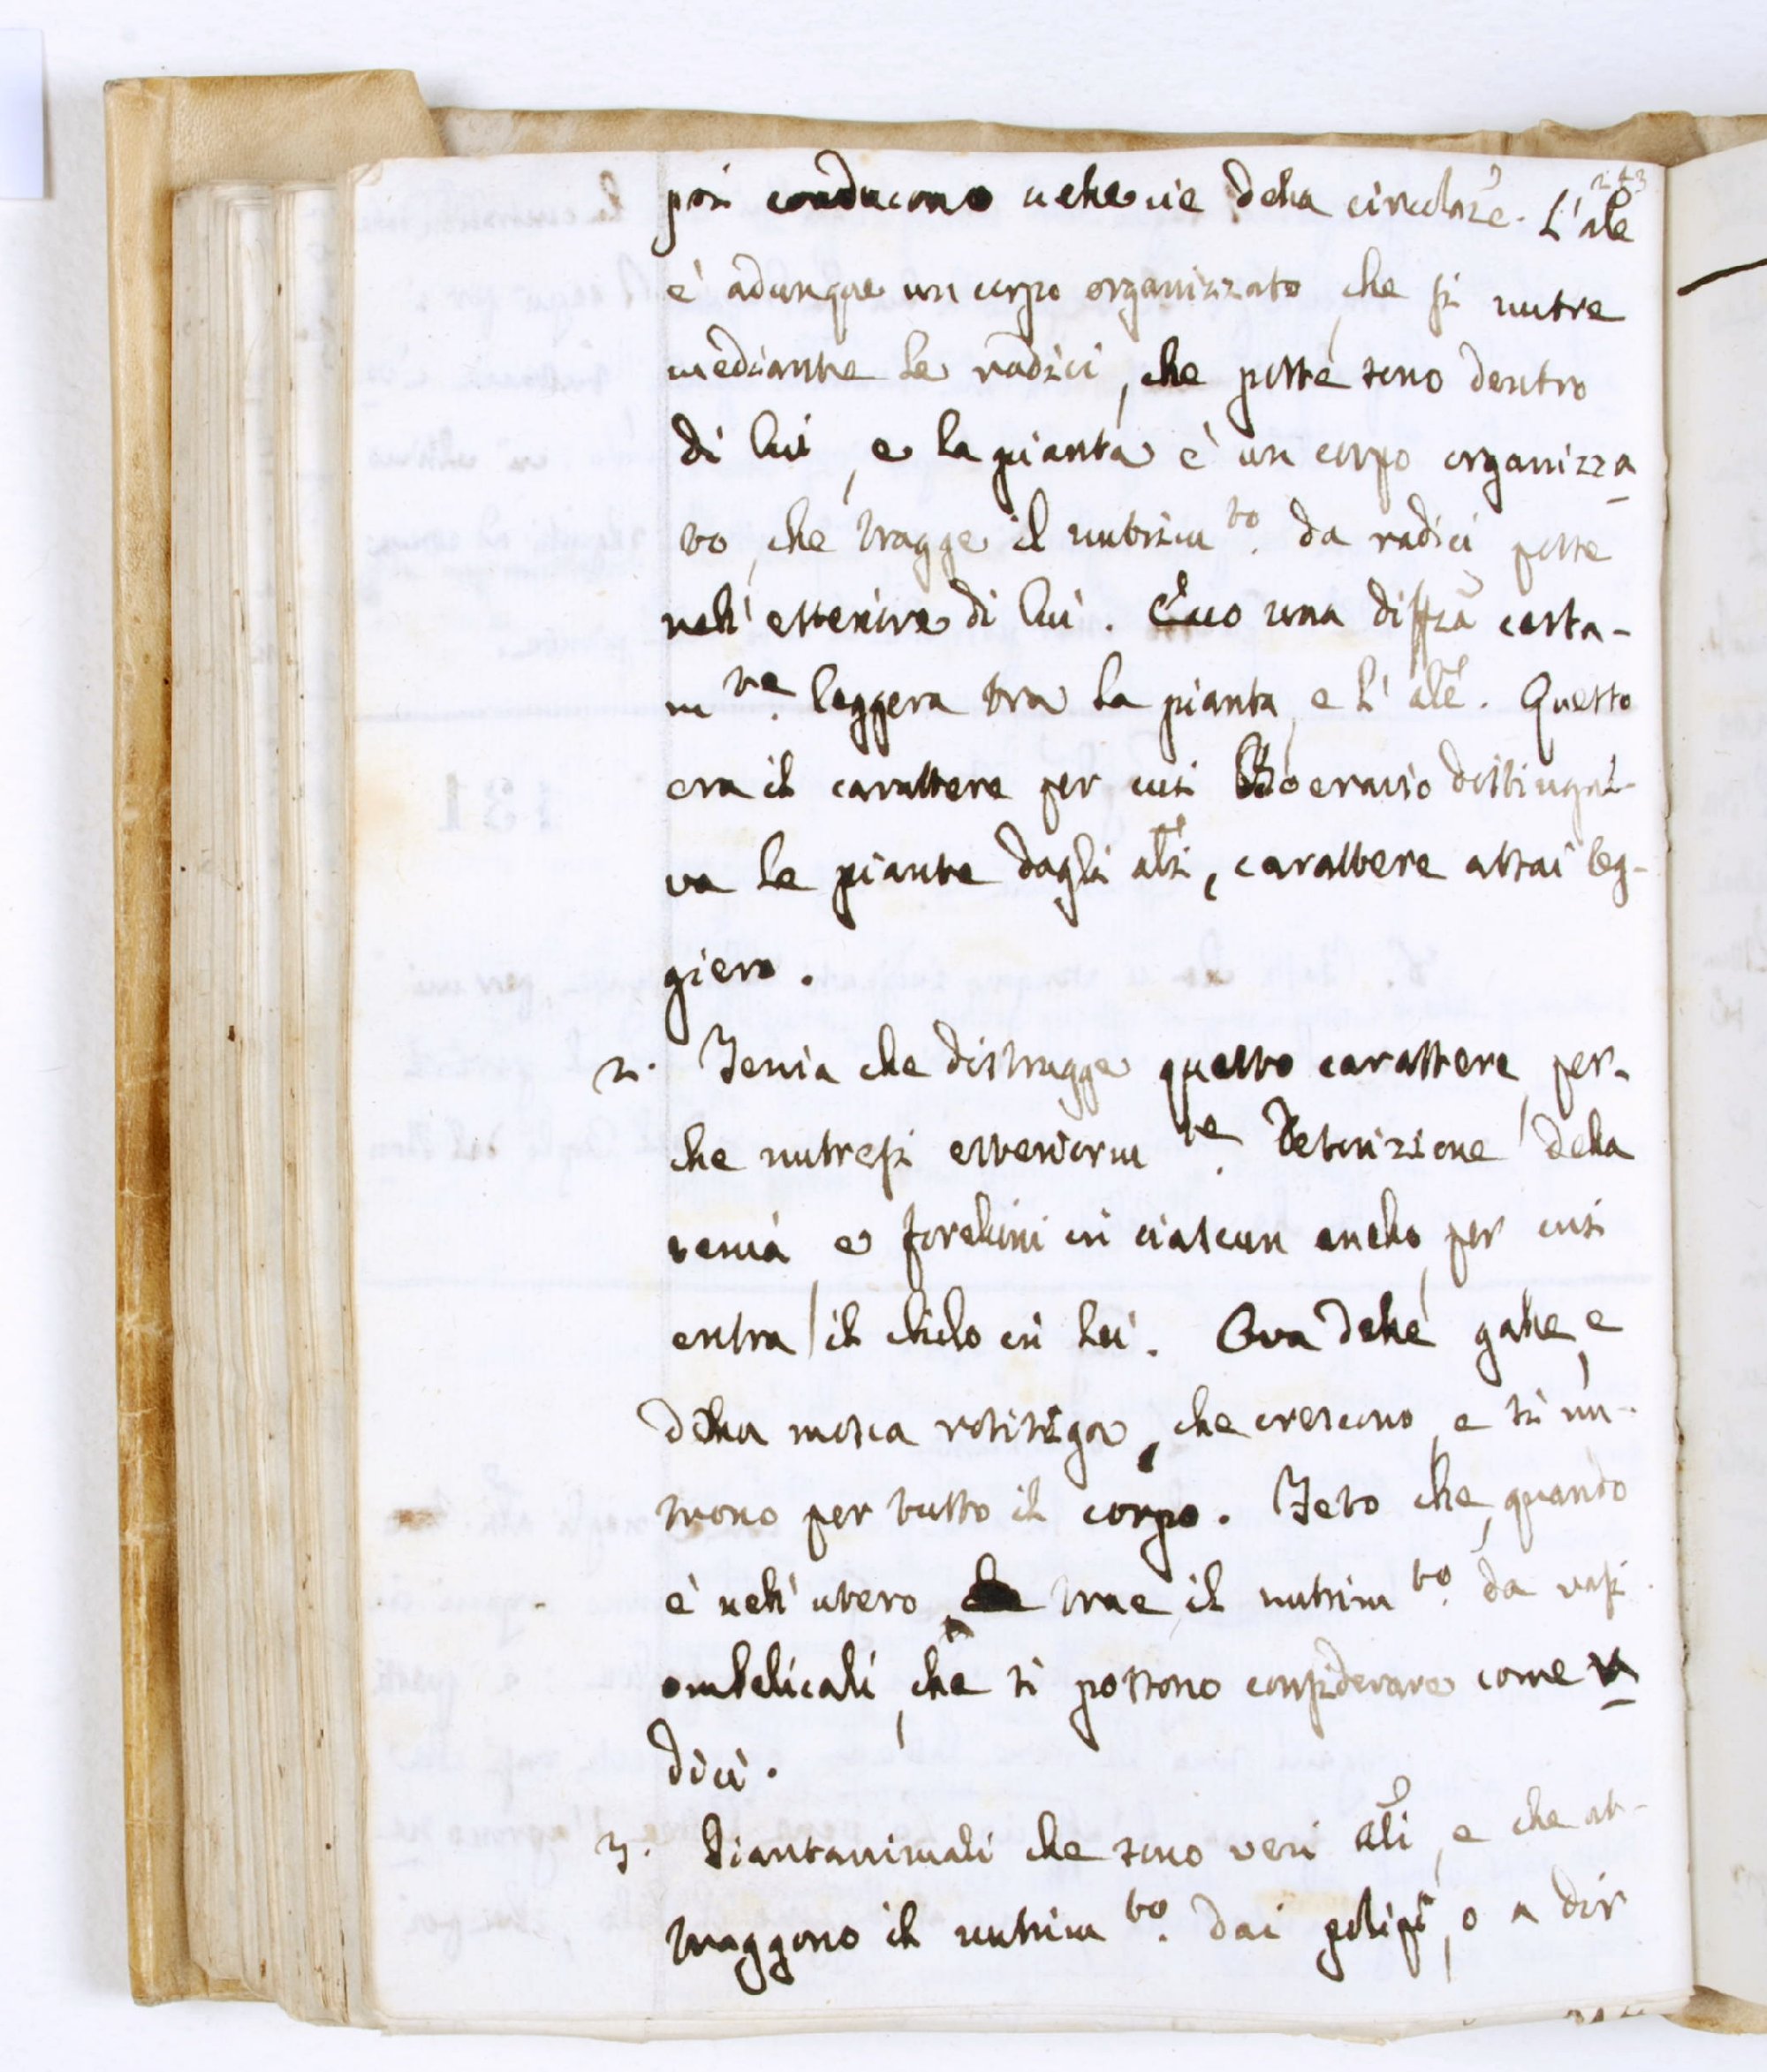 223
poi conducono nelle vie della circolaz̃e. L'ãle
è adunque un corpo organizzato, che si nutre
mediante le radici, che poste sono dentro
di lui, e la pianta è un corpo organizza
to, che tragge il nutrim.to da radici poste
nell'esteriore di lui. Ecco una diffz̃a certa-
m.te leggera tra la pianta, e l'ãle. Questo
era il carattere per cui Boeravio distingue-
va le piante dagli ãli, carattere assai leg-
giero.
2. Tenia che distrugge questo carattere, per-
che nutresi esteriorm.te. Descrizione della
tenia e forellini in ciascun anello, per cui
entra il chilo in lei. Ova delle galle, e
della mosca rosisega, che crescono, e si nu-
trono per tutto il corpo. Feto che, quando
è nell'utero, trae il nutrim.to da vasi
ombelicali, che si possono considerare come ra
dici.
3. Piantanimali che sono veri ãli, e che at-
traggono il nutrim.to dai polipi, o a dir